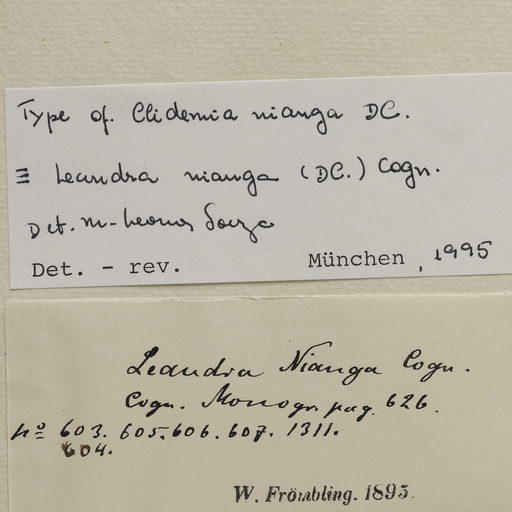 Type of. Clidemia nianga DC.
≡ Leandra nianga (DC.) Cogn.
Det. M-Leonor Souza
Det. - rev. München, 1995
Leandra Nianga Cogn.
Cogn. Monogr. pag. 626.
No 603. 605. 606. 607. 1311.
604.
W. Frömbling. 1895.